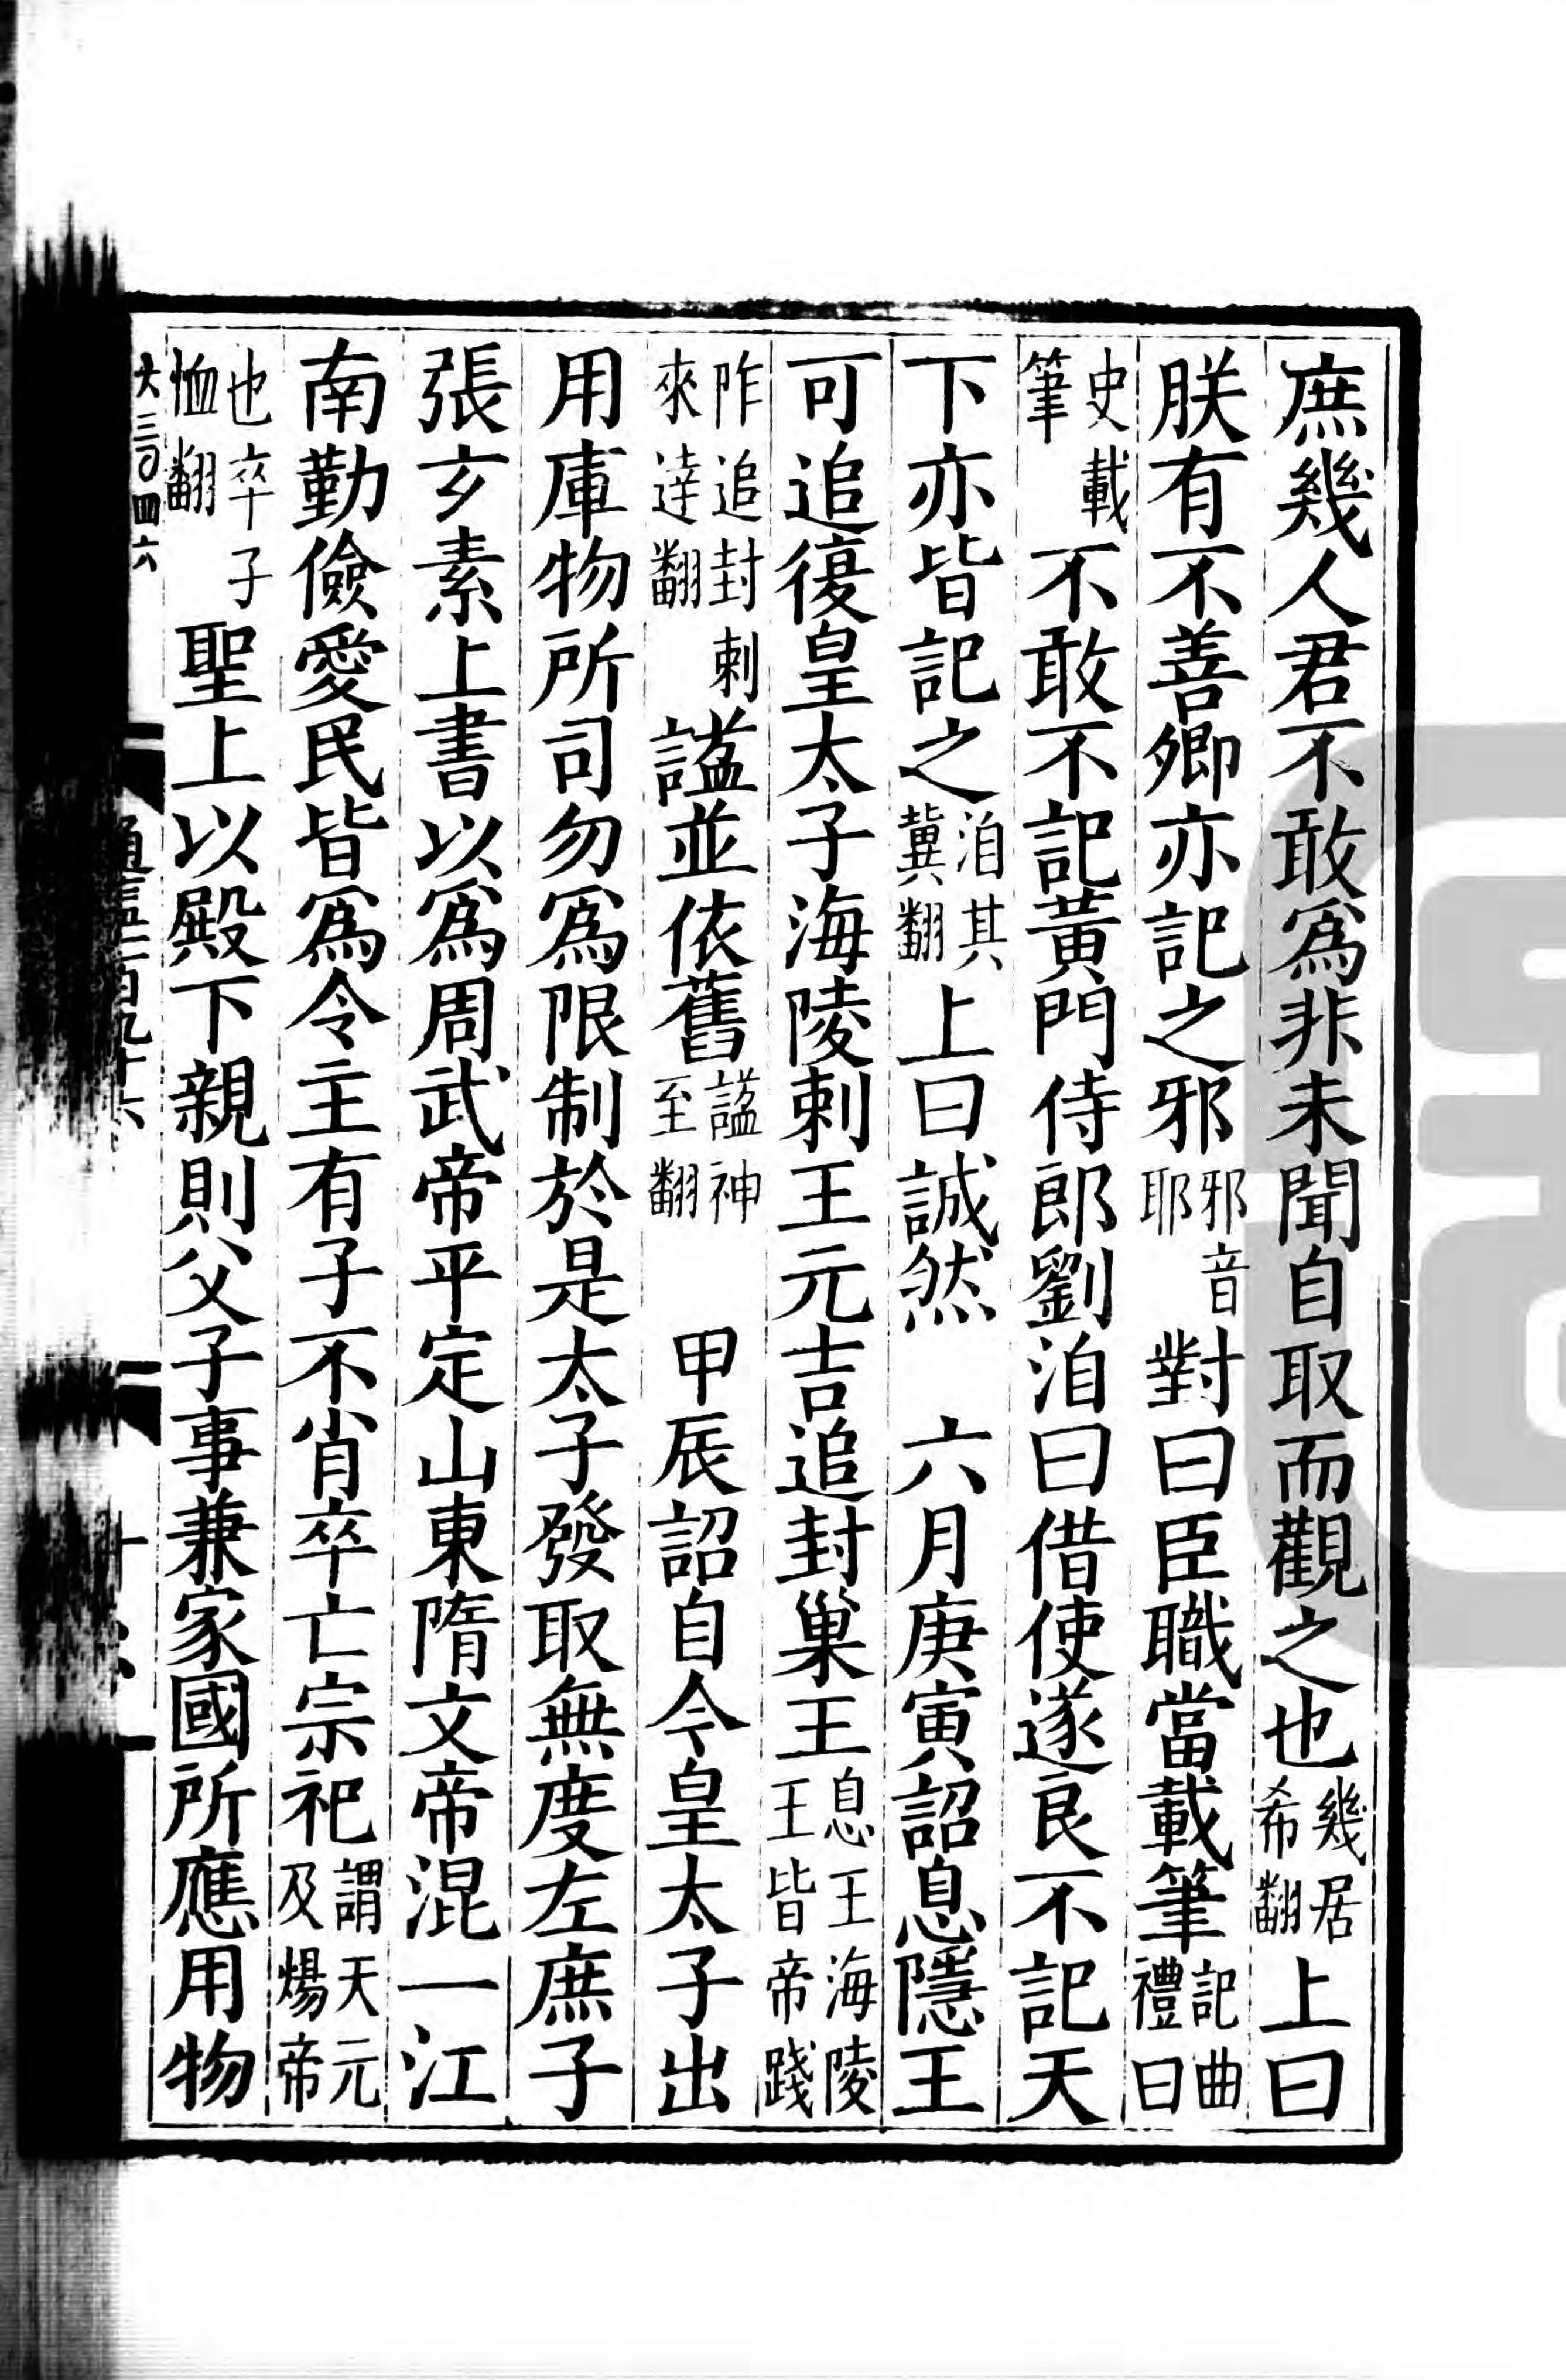 庶幾人君不敢爲非未聞自取而觀之也幾居希翻上曰
朕有不善卿亦記之邪邪音耶對曰臣職當載筆記曲禮曰
史載筆不敢不記黃門侍郎劉洎曰借使遂良不記天
下亦皆記之洎其冀翻上曰誠然　六月庚寅詔息隱王
可追復皇太子海陵剌王元吉追封巢王息王海陵王皆帝踐
阼追封剌來達翻諡並依舊諡神至翻　甲辰詔自今皇太子出
用庫物所司勿爲限制於是太子發取無度左庶子
張玄素上書以爲周武帝平定山東隋文帝混一江
南勤儉愛民皆爲令主有子不肖卒亡宗祀謂天元及煬帝
也卒子恤翻聖上以殿下親則父子事兼家國所應用物
大三〇四六